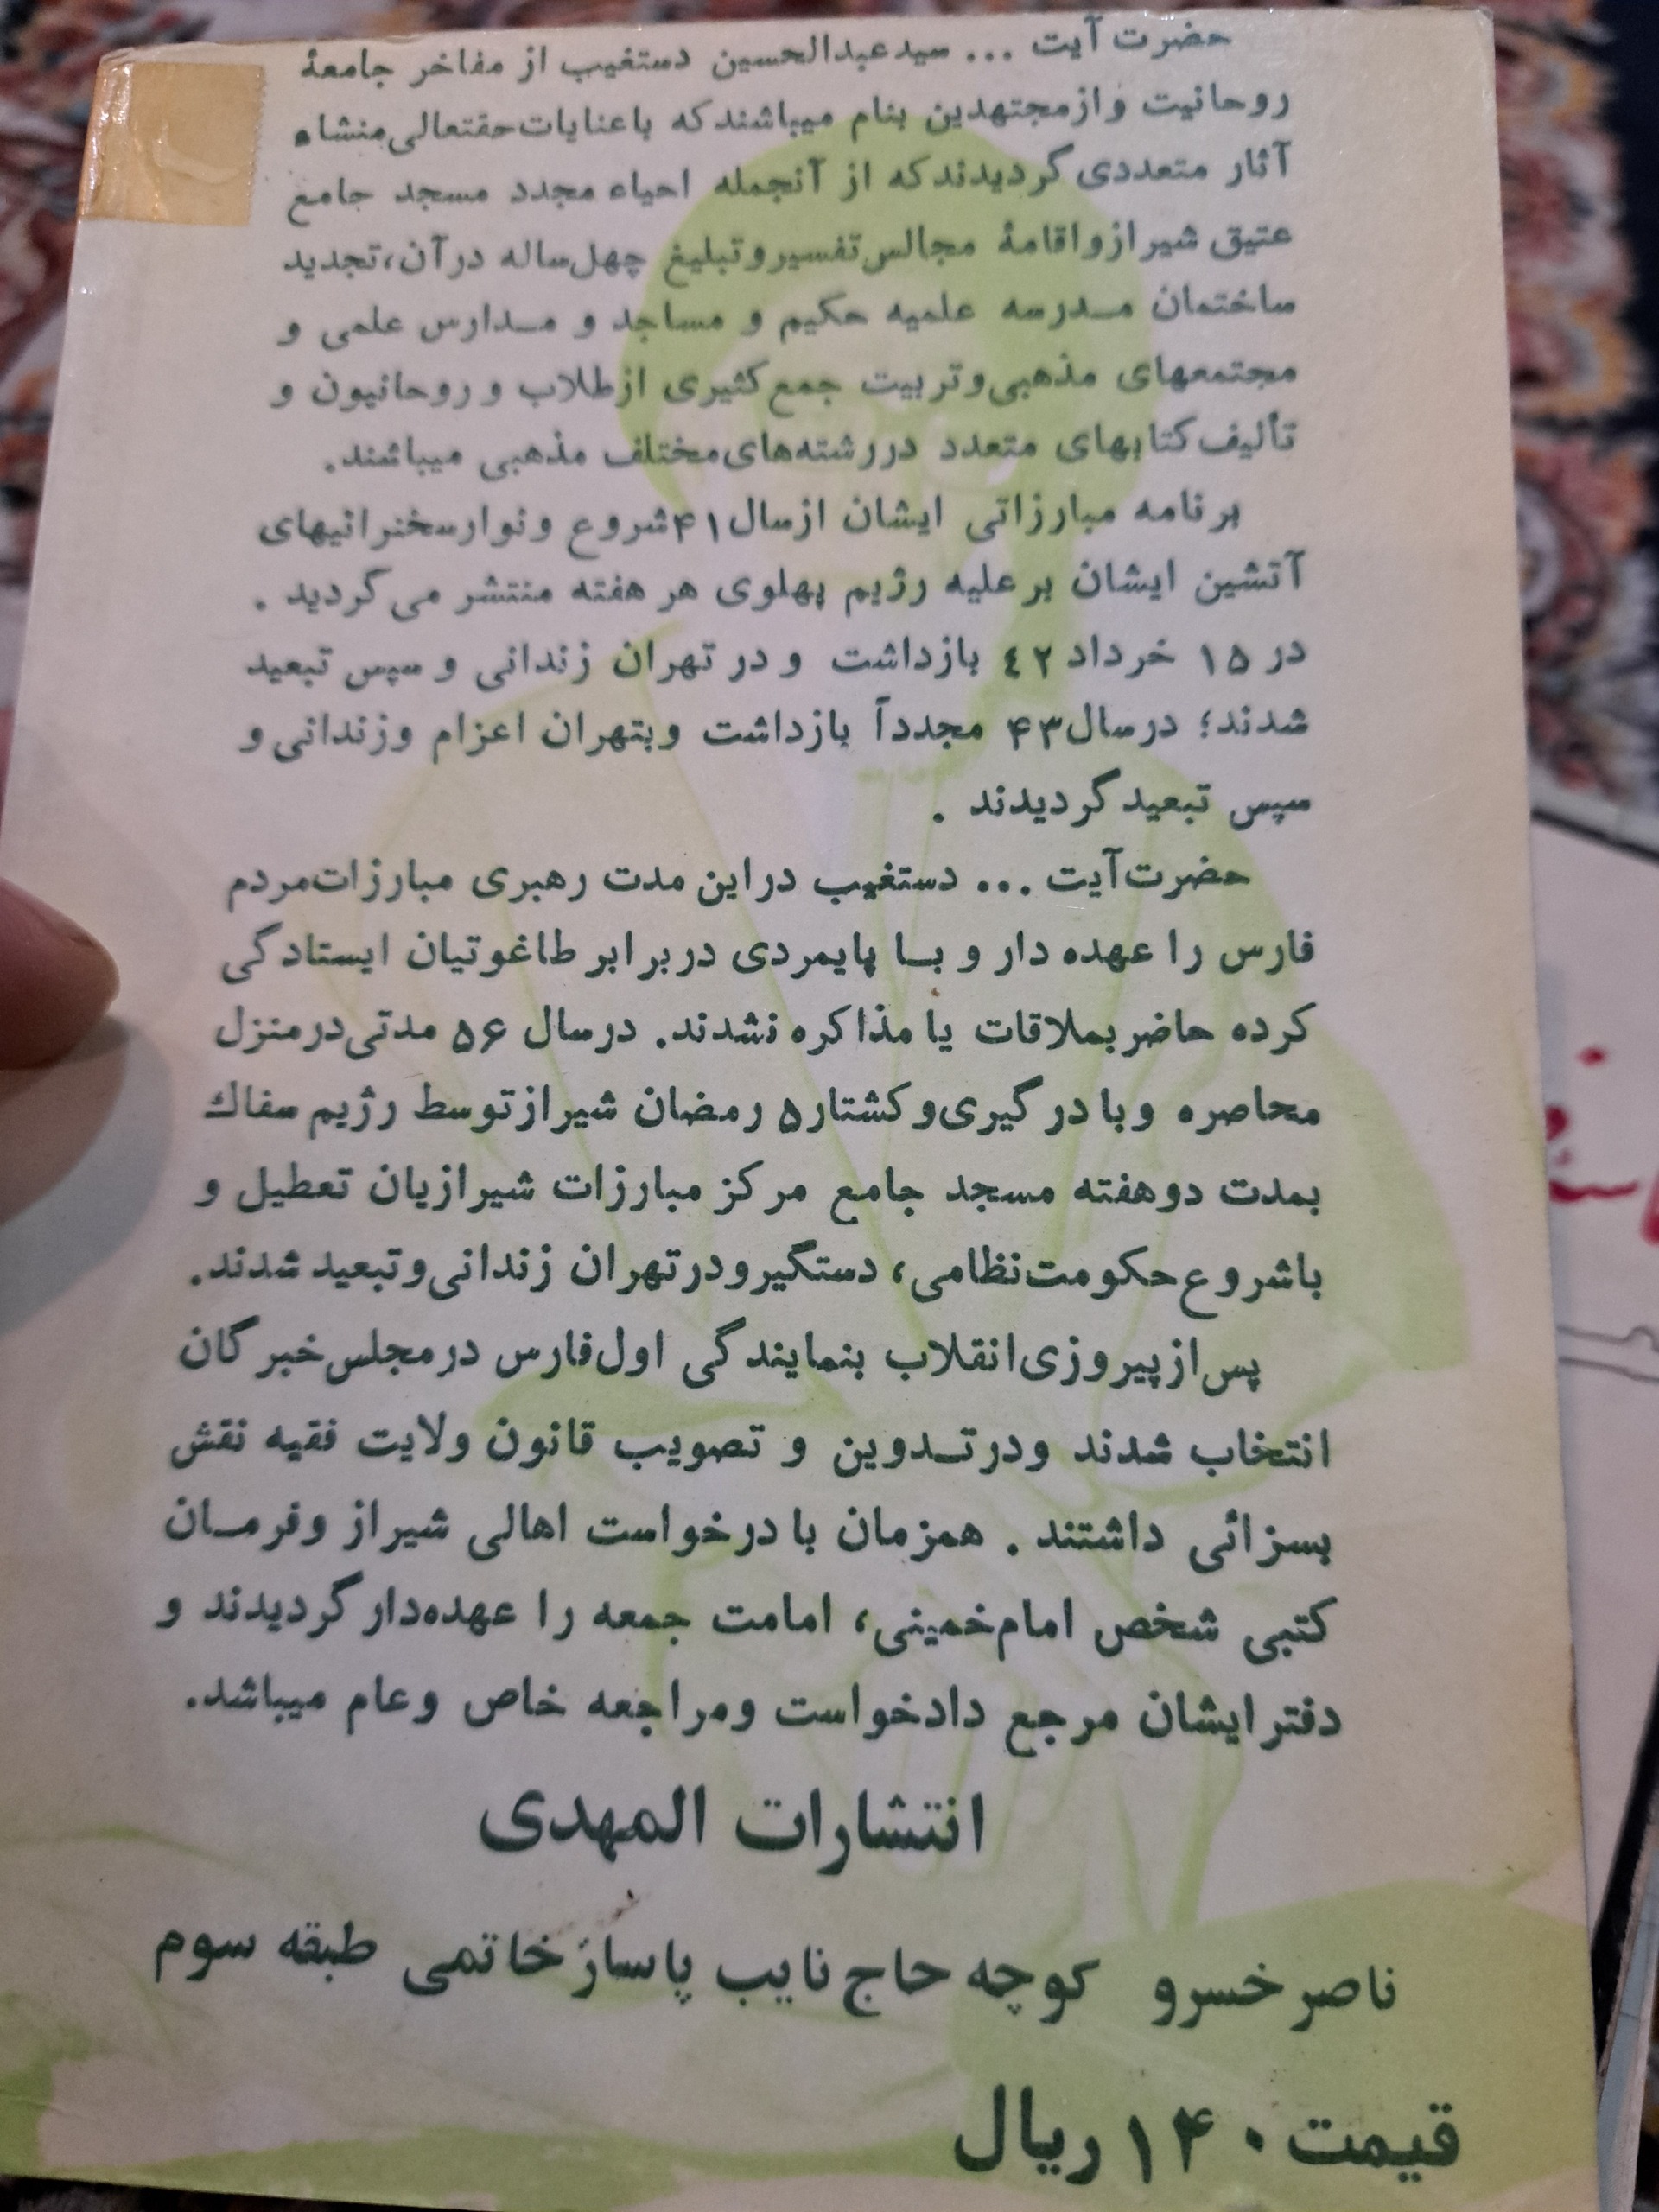 حضرت آیت ... سید عبدالحسین دستغیب از مفاخر جامعهٔ
روحانیت و از مجتهدین بنام میباشند که با عنایات حقتعالی منشاء
آثار متعددی گردیدند که از آنجمله احیاء مجدد مسجد جامع
عتیق شیراز و اقامهٔ مجالس تفسیر و تبلیغ چهل‌ساله در آن، تجدید
ساختمان مدرسه علمیه حکیم و مساجد و مدارس علمی و
مجتمعهای مذهبی و تربیت جمع کثیری از طلاب و روحانیون و
تألیف کتابهای متعدد در رشته‌های مختلف مذهبی میباشند.
برنامه مبارزاتی ایشان از سال ۴۱ شروع و نوار سخنرانیهای
آتشین ایشان بر علیه رژیم پهلوی هر هفته منتشر می‌گردید .
در ۱۵ خرداد ٤٢ بازداشت و در تهران زندانی و سپس تبعید
شدند؛ در سال ۴۳ مجدداً بازداشت و بتهران اعزام و زندانی و
سپس تبعید گردیدند .
حضرت آیت ... دستغیب در این مدت رهبری مبارزات مردم
فارس را عهده دار و بـا پایمردی در برابر طاغوتیان ایستادگی
کرده حاضر بملاقات یا مذاکره نشدند. در سال ۵۶ مدتی در منزل
محاصره و با درگیری و کشتار ۵ رمضان شیراز توسط رژیم سفاك
بمدت دو هفته مسجد جامع مرکز مبارزات شیرازیان تعطیل و
با شروع حکومت نظامی، دستگیر و در تهران زندانی و تبعید شدند.
پس از پیروزی انقلاب بنمایندگی اول فارس در مجلس خبرگان
انتخاب شدند و در تـدوین و تصویب قانون ولایت فقیه نقش
بسزائی داشتند . همزمان با درخواست اهالی شیراز و فرمـان
کتبی شخص امام خمینی، امامت جمعه را عهده‌دار گردیدند و
دفتر ایشان مرجع دادخواست و مراجعه خاص و عام میباشد.
انتشارات المهدی
ناصر خسرو کوچه حاج نایب پاساژ خاتمی طبقه سوم
قیمت ۱۴۰ ریال